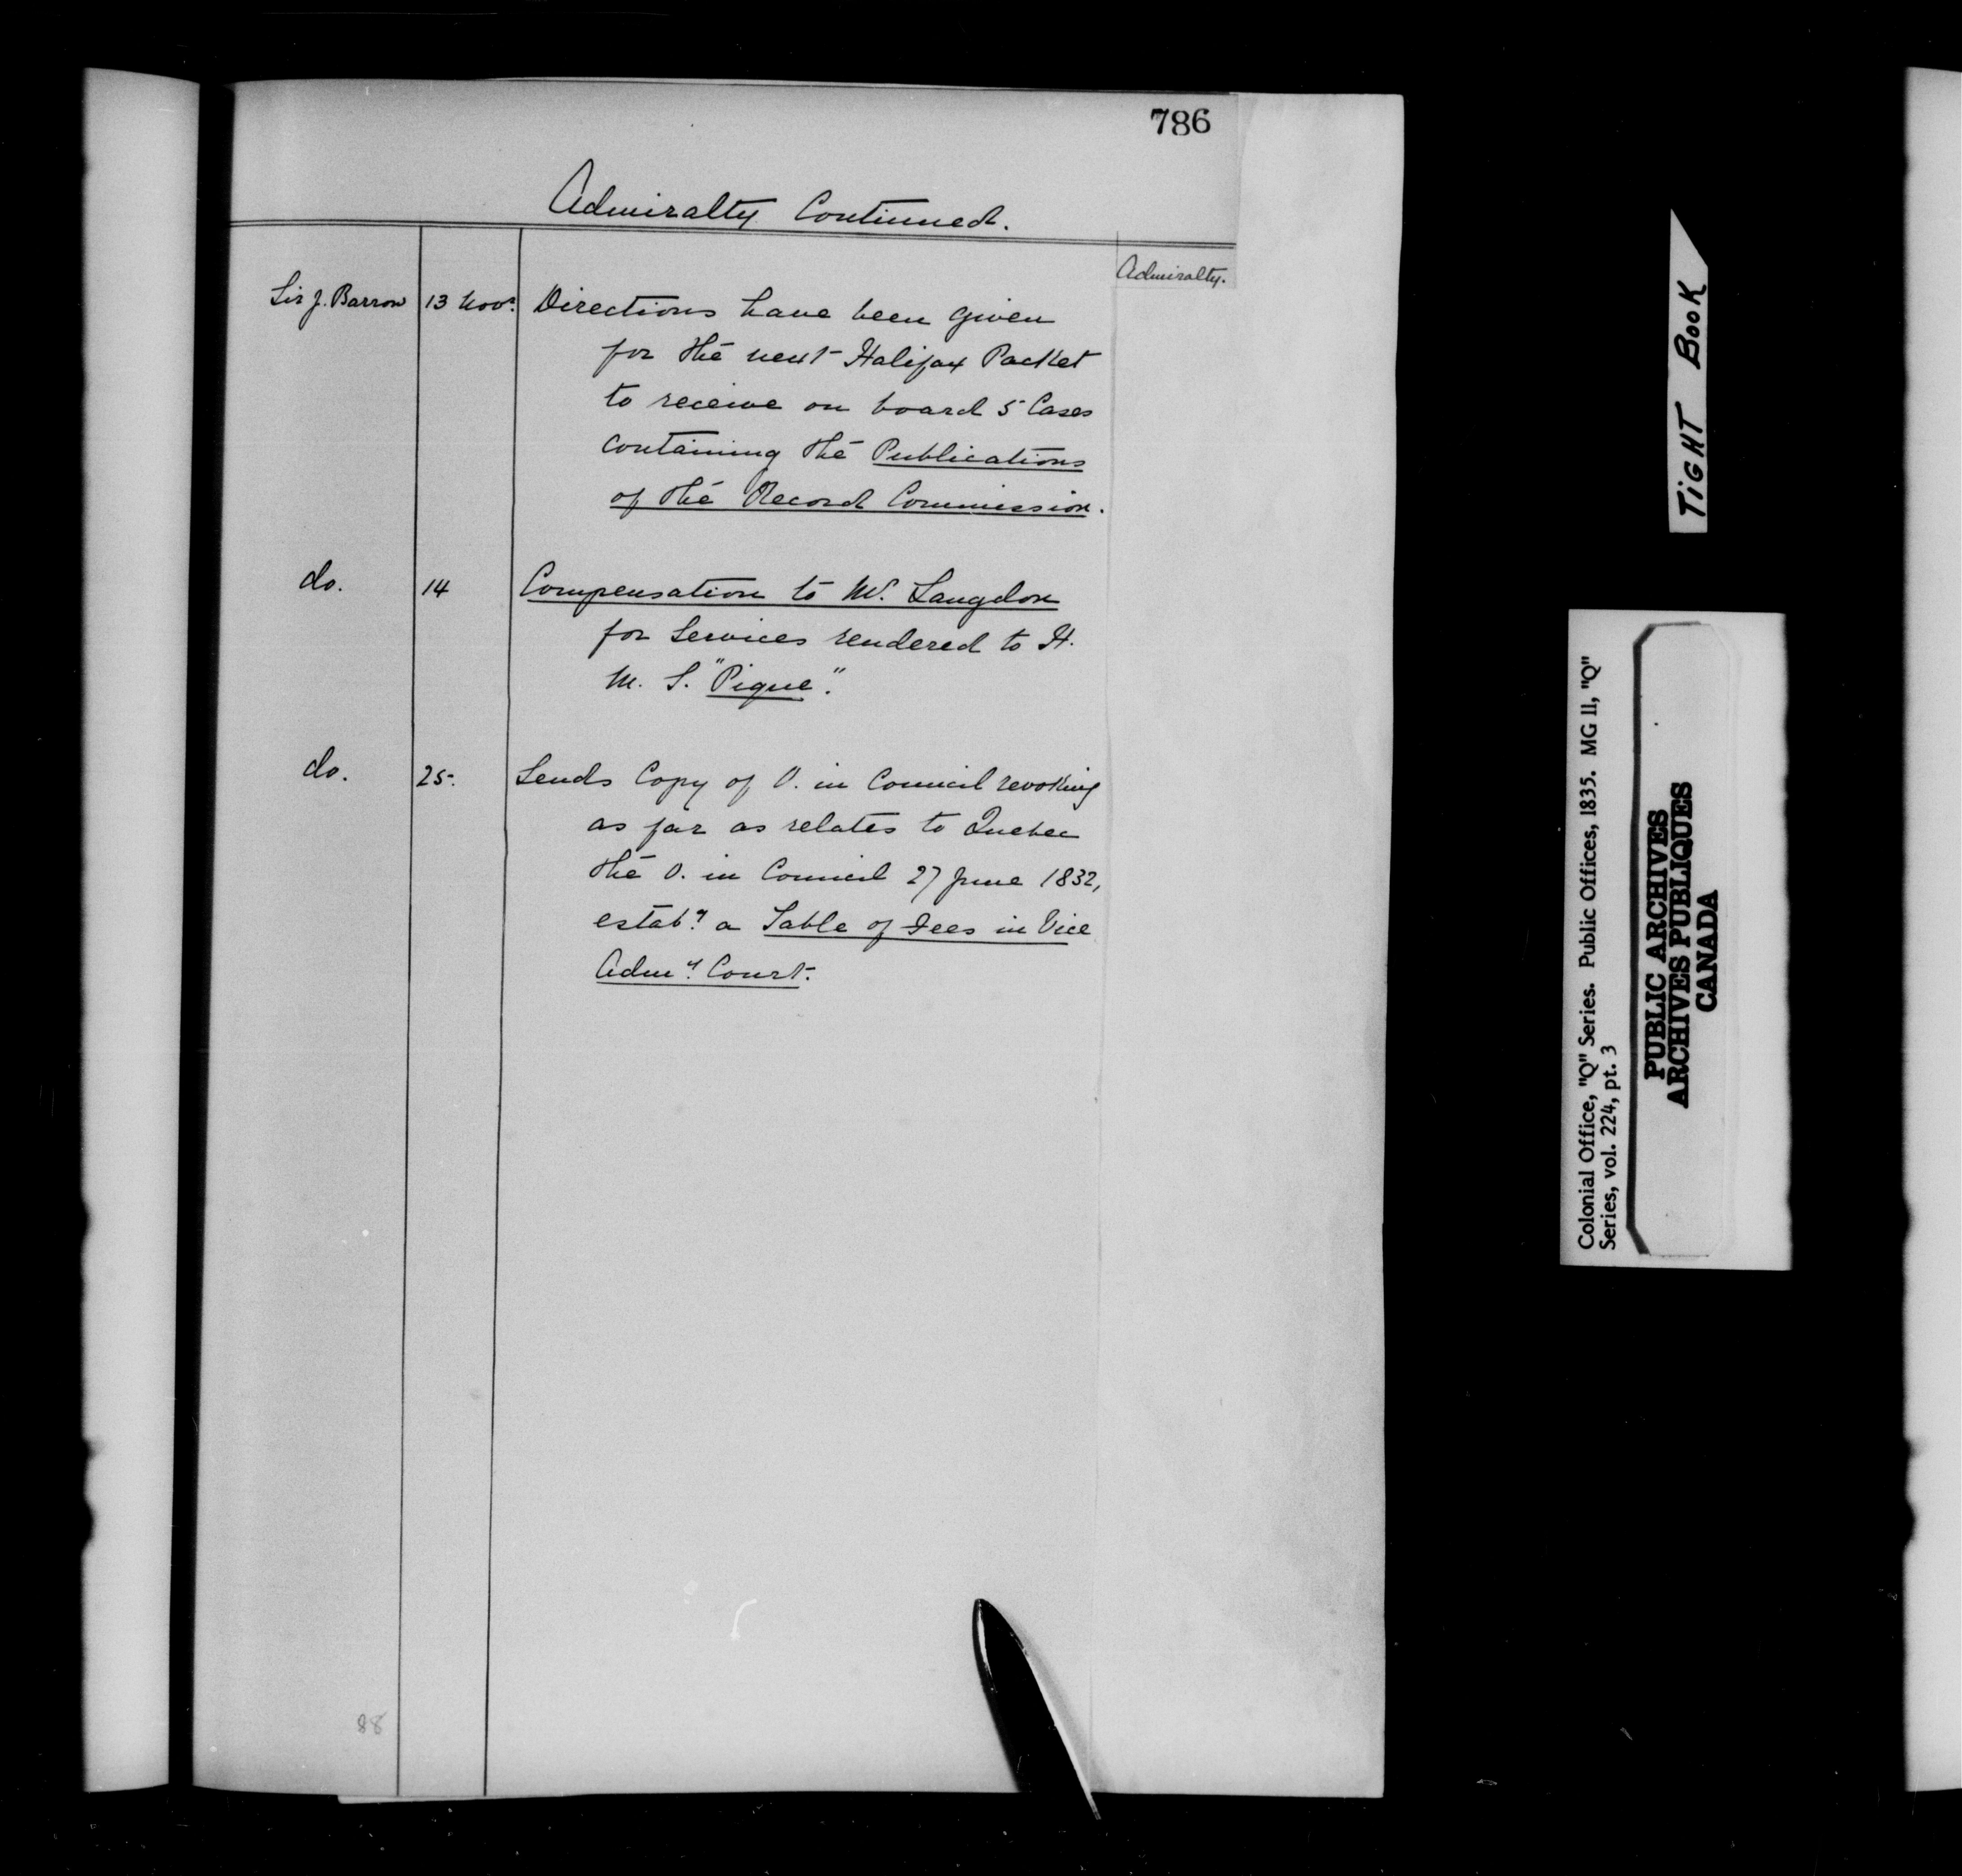 786
Admiralty Continued.
Admiralty.
Sir J. Barrow 13 Novr. Directions have been given
for the next Halifax Packet
to receive on board 5 Cases
containing the Publications
of the Record Commission.
do. 14 Compensation to Mr. Langdon
for services rendered to H.
M. S. "Pique".
do. 25. Sends Copy of O. in Council revoking
as far as relates to Quebec
the O. in Council 27 June 1832,
estabg. a Table of Fees in Vice
Admy. Court.
88
TIGHT BOOK
Colonial Office, "Q" Series. Public Offices, 1835. MG 11, "Q"
Series, vol. 224, pt. 3
PUBLIC ARCHIVES
ARCHIVES PUBLIQUES
CANADA